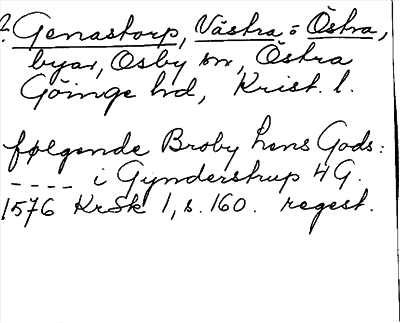 ? Genastorp, Västra= Östra,
byar, Osby sn, Östra
Göinge hd, Krist. l.
følgende Broby Lens Gods:
---- i Gynderstrup 4 G.
1576 KrSk 1, s. 160. regest.